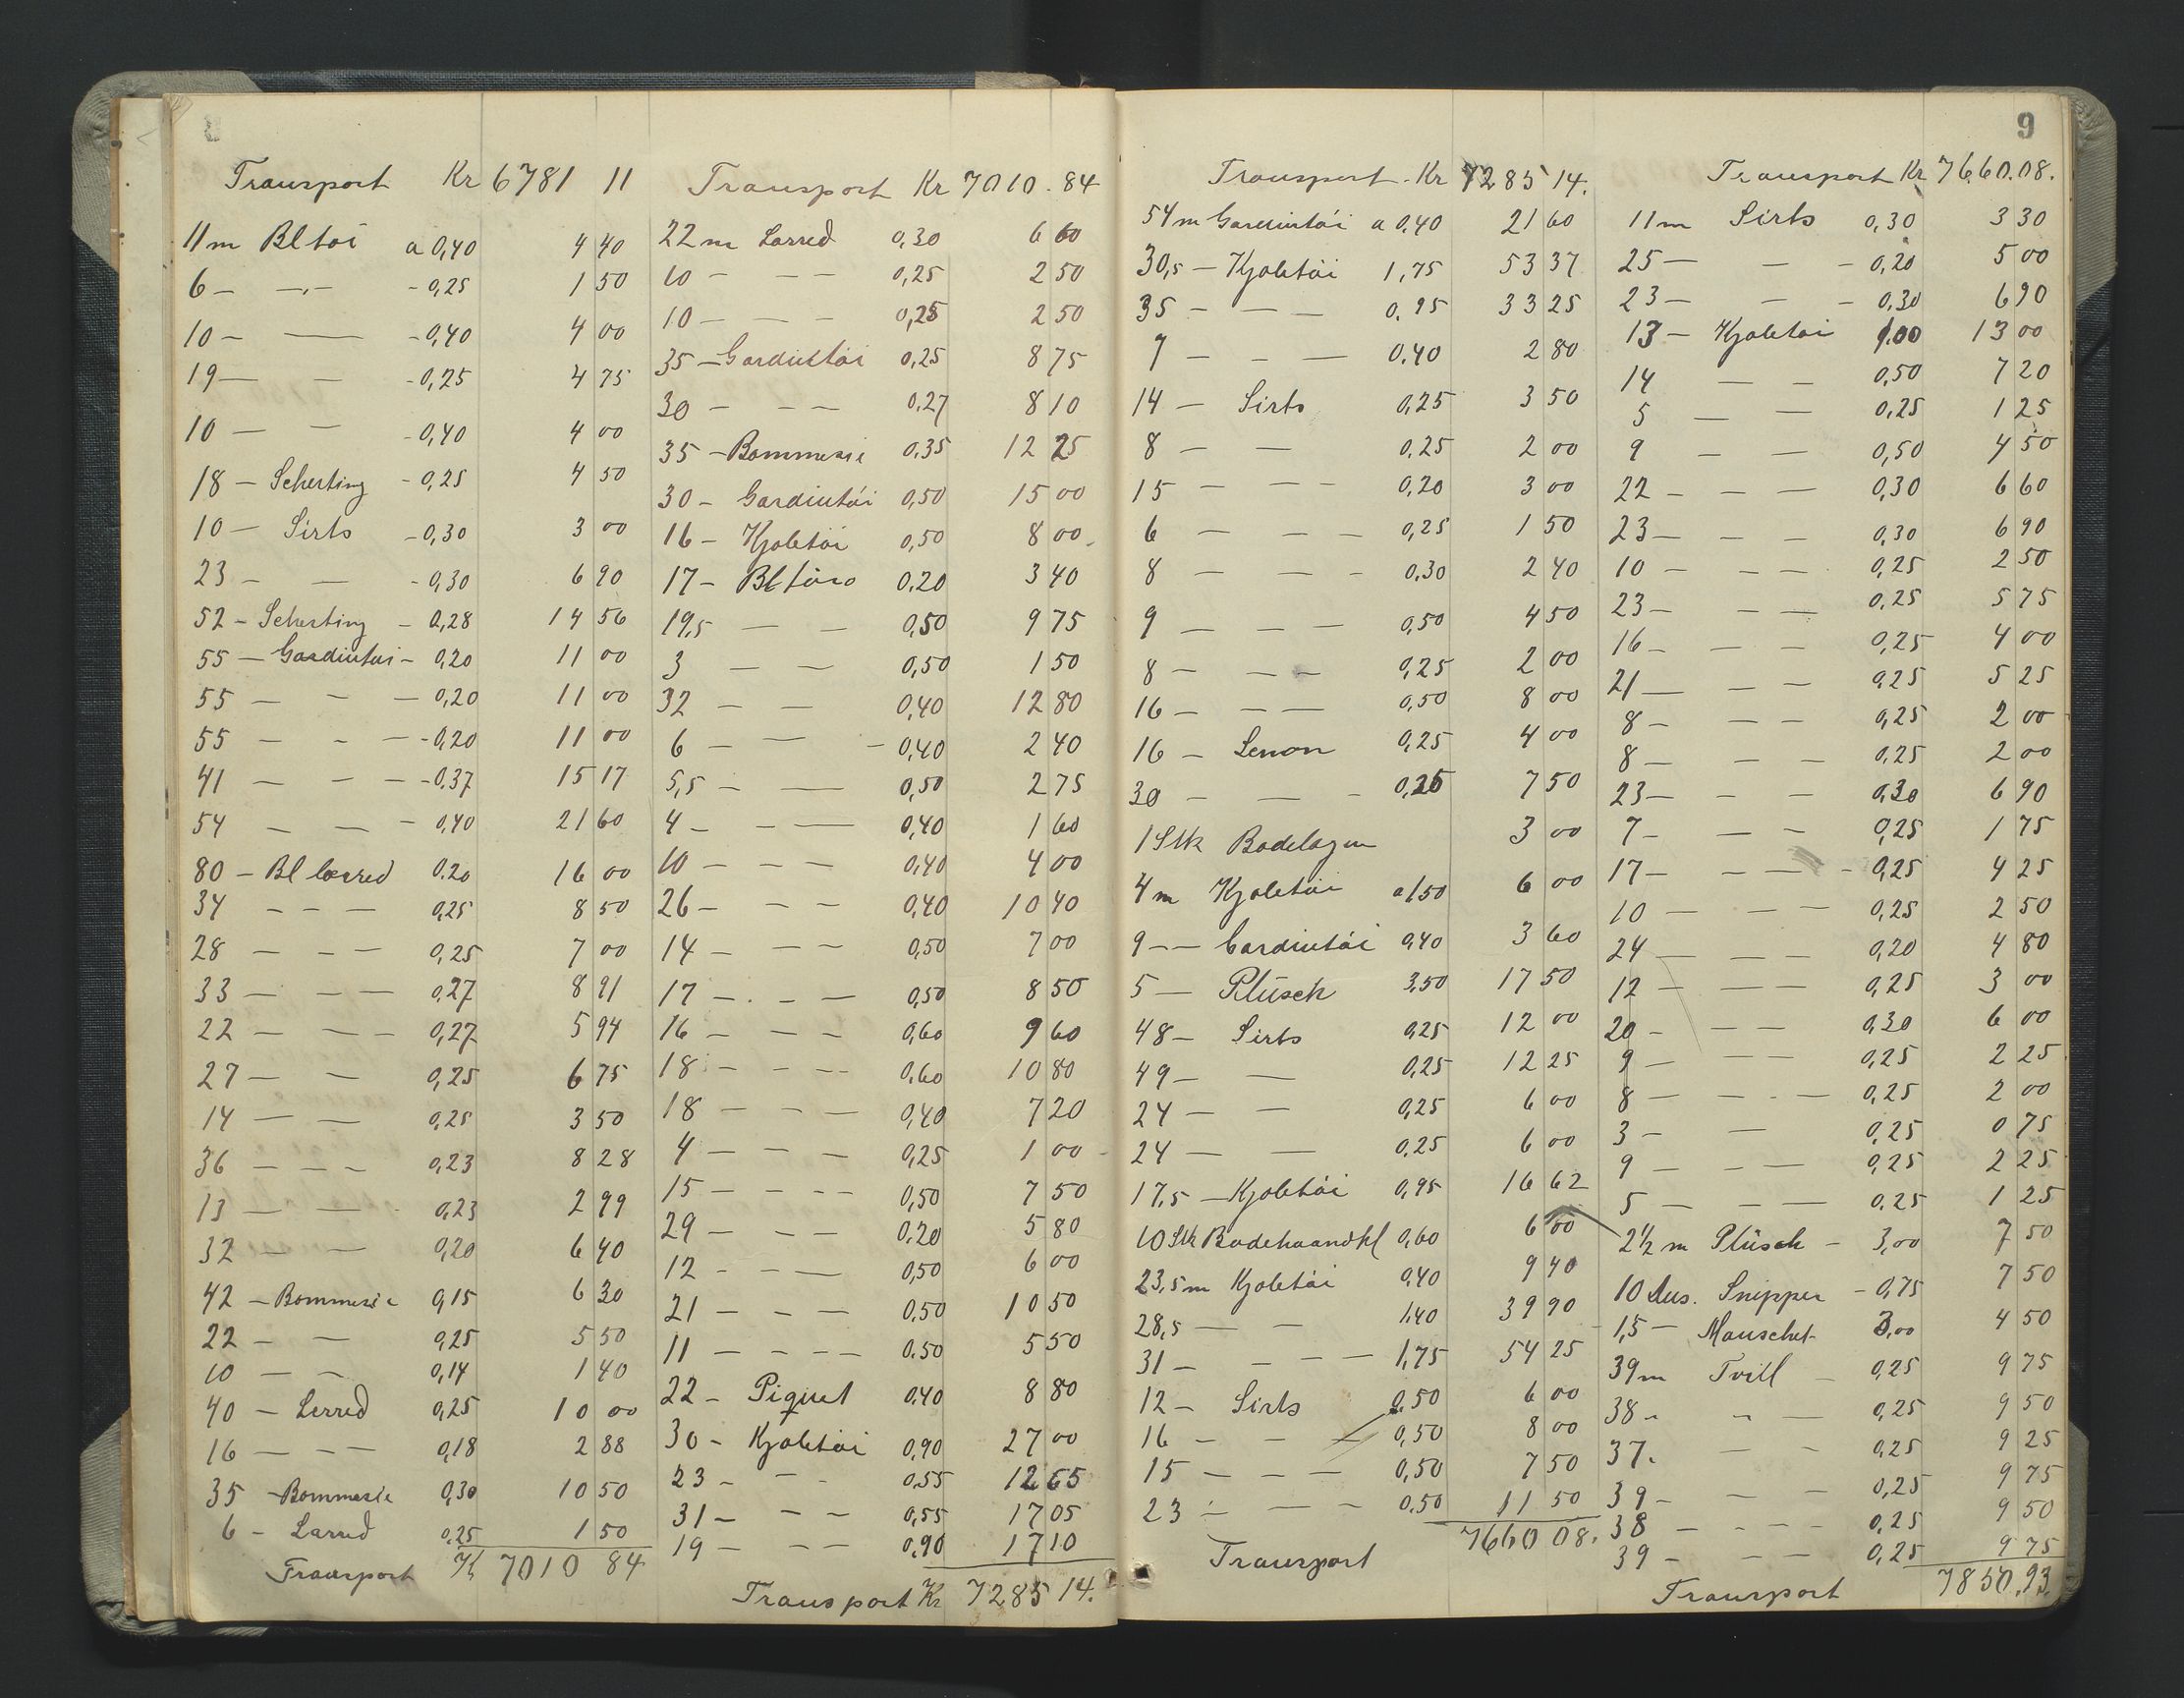 8
Transport Kr 6781 11
11 m Bl töi a 0,40 4 40
6 - -„- - 0,25 1 50
10 - — - 0,40 4 00
19 — — - 0,25 4 75
10 — — - 0,40 4 00
18 - Scherting - 0,25 4 50
10 - Sirts - 0,30 3 00
23 - — - 0,30 6 90
52 - Scherting - 0,28 14 56
55 - Gardintöi - 0,20 11 00
55 — - — 0,20 11 00
55 — - — - 0,20 11 00
41 — - — - 0,37 15 17
54 — — - 0,40 21 60
80 - Bl lærred 0.20 16 00
34 - - — 0,25 8 50
28 — - — 0,25 7 00
33 — - — 0,27 8 91
22 — — - 0,27 5 94
27 — — 0,25 6 75
14 — — 0,25 3 50
36 — - - 0,23 8 28
13 — — 0,23 2 99
32 — — 0,20 6 40
42 - Bommesie 0,15 6 30
22 — — 0,25 5 50
10 — - 0,14 1 40
40 - Lerred 0,25 10 00
16 — - — 0,18 2 88
35 - Bommesie 0,30 10 50
6 - Larred 0,25 1 50
Transport Kr 7010 84
Transport Kr 7010.84
22 m Larred 0,30 6 60
10 - — — 0,25 2 50
10 — - — 0,25 2 50
35 - Gardintöi 0,25 8 75
30 - - — 0,27 8 10
35 - Bommesie 0,35 12 25
30 - Gardintöi 0,50 15 00
16 - Kjoletöi 0,50 8 00
17 - Bl töiso 0,20 3 40
19,5 — — 0,50 9 75
3 — — 0,50 1 50
32 — — 0,40 12 80
6 — — - 0,40 2 40
5,5 — — 0,50 2 75
4 - - — 0,40 1 60
10 — - — 0,40 4 00
26 - - — 0,40 10 40
14 — - — 0,50 7 00
17 — - — 0,50 8 50
16 — - — 0,60 9 60
18 - - - - 0,60 10 80
18 — - — 0,40 7 20
4 — - — 0,25 1 00
15 — - - - 0,50 7 50
29 — - — 0,20 5 80
12 - - — 0,50 6 00
21 - - — 0,50 10 50
11 — - - — 0.50 5 50
22 - Piquet 0,40 8 80
30 - Kjoletöi 0,90 27 00
23 - - - 0,55 12 65
31 — - — 0,55 17 05
19 — - — 0,90 17 10
Transport Kr 7285 14.
9
Transport - Kr 7285 14.
54 m Gardintöi a 0,40 21 60
30,5 — Kjoletöi 1,75 53 37
35 - - — 0,95 33 25
7 — - — 0.40 2 80
14 — Sirts 0,25 3 50
8 - — 0,25 2 00
15 - - - 0,20 3 00
6 — - — 0,25 1 50
8 — — - 0,30 2 40
9 — - — 0,50 4 50
8 - - — 0,25 2 00
16 — - — 0,50 8 00
16 - Lenon 0,25 4 00
30 - — - 0,25 7 50
1 Stk Badelagen 3 00
4 m Kjoletöi a 1,50 6 00
9 -- Gardintöi 0,40 3 60
5 — Plüsch 3,50 17 50
48 - Sirts 0,25 12 00
49 — — 0,25 12 25
24 — — 0,25 6 00
24 — — 0,25 6 00
17,5 - Kjoletöi 0,95 16 62
10 Stk Badehaandkl 0,60 6 00
23,5 m Kjoletöi 0,40 9 40
28,5 — - 1,40 39 90
31 - - - — 1,75 54 25
12 - Sirts 0,50 6 00
16 - - — 0,50 8 00
15 — - — 0,50 7 50
23 - — - 0,50 11 50
7660 08.
Transport
Transport Kr 7660.08.
11 m Sirts 0,30 3 30
25 — — - 0,20 5 00
23 — — - 0,30 6 90
13 - Kjoletöi 1.00 13 00
14 — - 0,50 7 20
5 — — 0,25 1 25
9 - — 0,50 4 50
22 - - — 0,30 6 60
23 — - — 0,30 6 90
10 — - — 0,25 2 50
23 — - — 0,25 5 75
16 - — - 0,25 4 00
21 — - — 0,25 5 25
8 - - — 0,25 2 00
8 — - — 0,25 2 00
23 — - — 0,30 6 90
7 - - — 0,25 1 75
17 — - — - 0,25 4 25
10 — - — 0,25 2 50
24 — - — 0,20 4 80
12 — - — 0,25 3 00
20 - - — 0,30 6 00
9 — - — 0,25 2 25
8 — - - — 0,25 2 00
3 - — 0,25 0 75
9 — - — 0,25 2 25
5 — - — 0,25 1 25
2½ m Plüsch - 3,00 7 50
10 Dus. Snipper - 0,75 7 50
1,5 — Manschet 3,00 4 50
39 m Tvill - 0,25 9 75
38 - - — 0,25 9 50
37. — - 0,25 9 25
39 - - — 0,25 9 75
38 — - - - 0,25 9 50
39 - - — 0,25 9 75
Transport 7850.93.